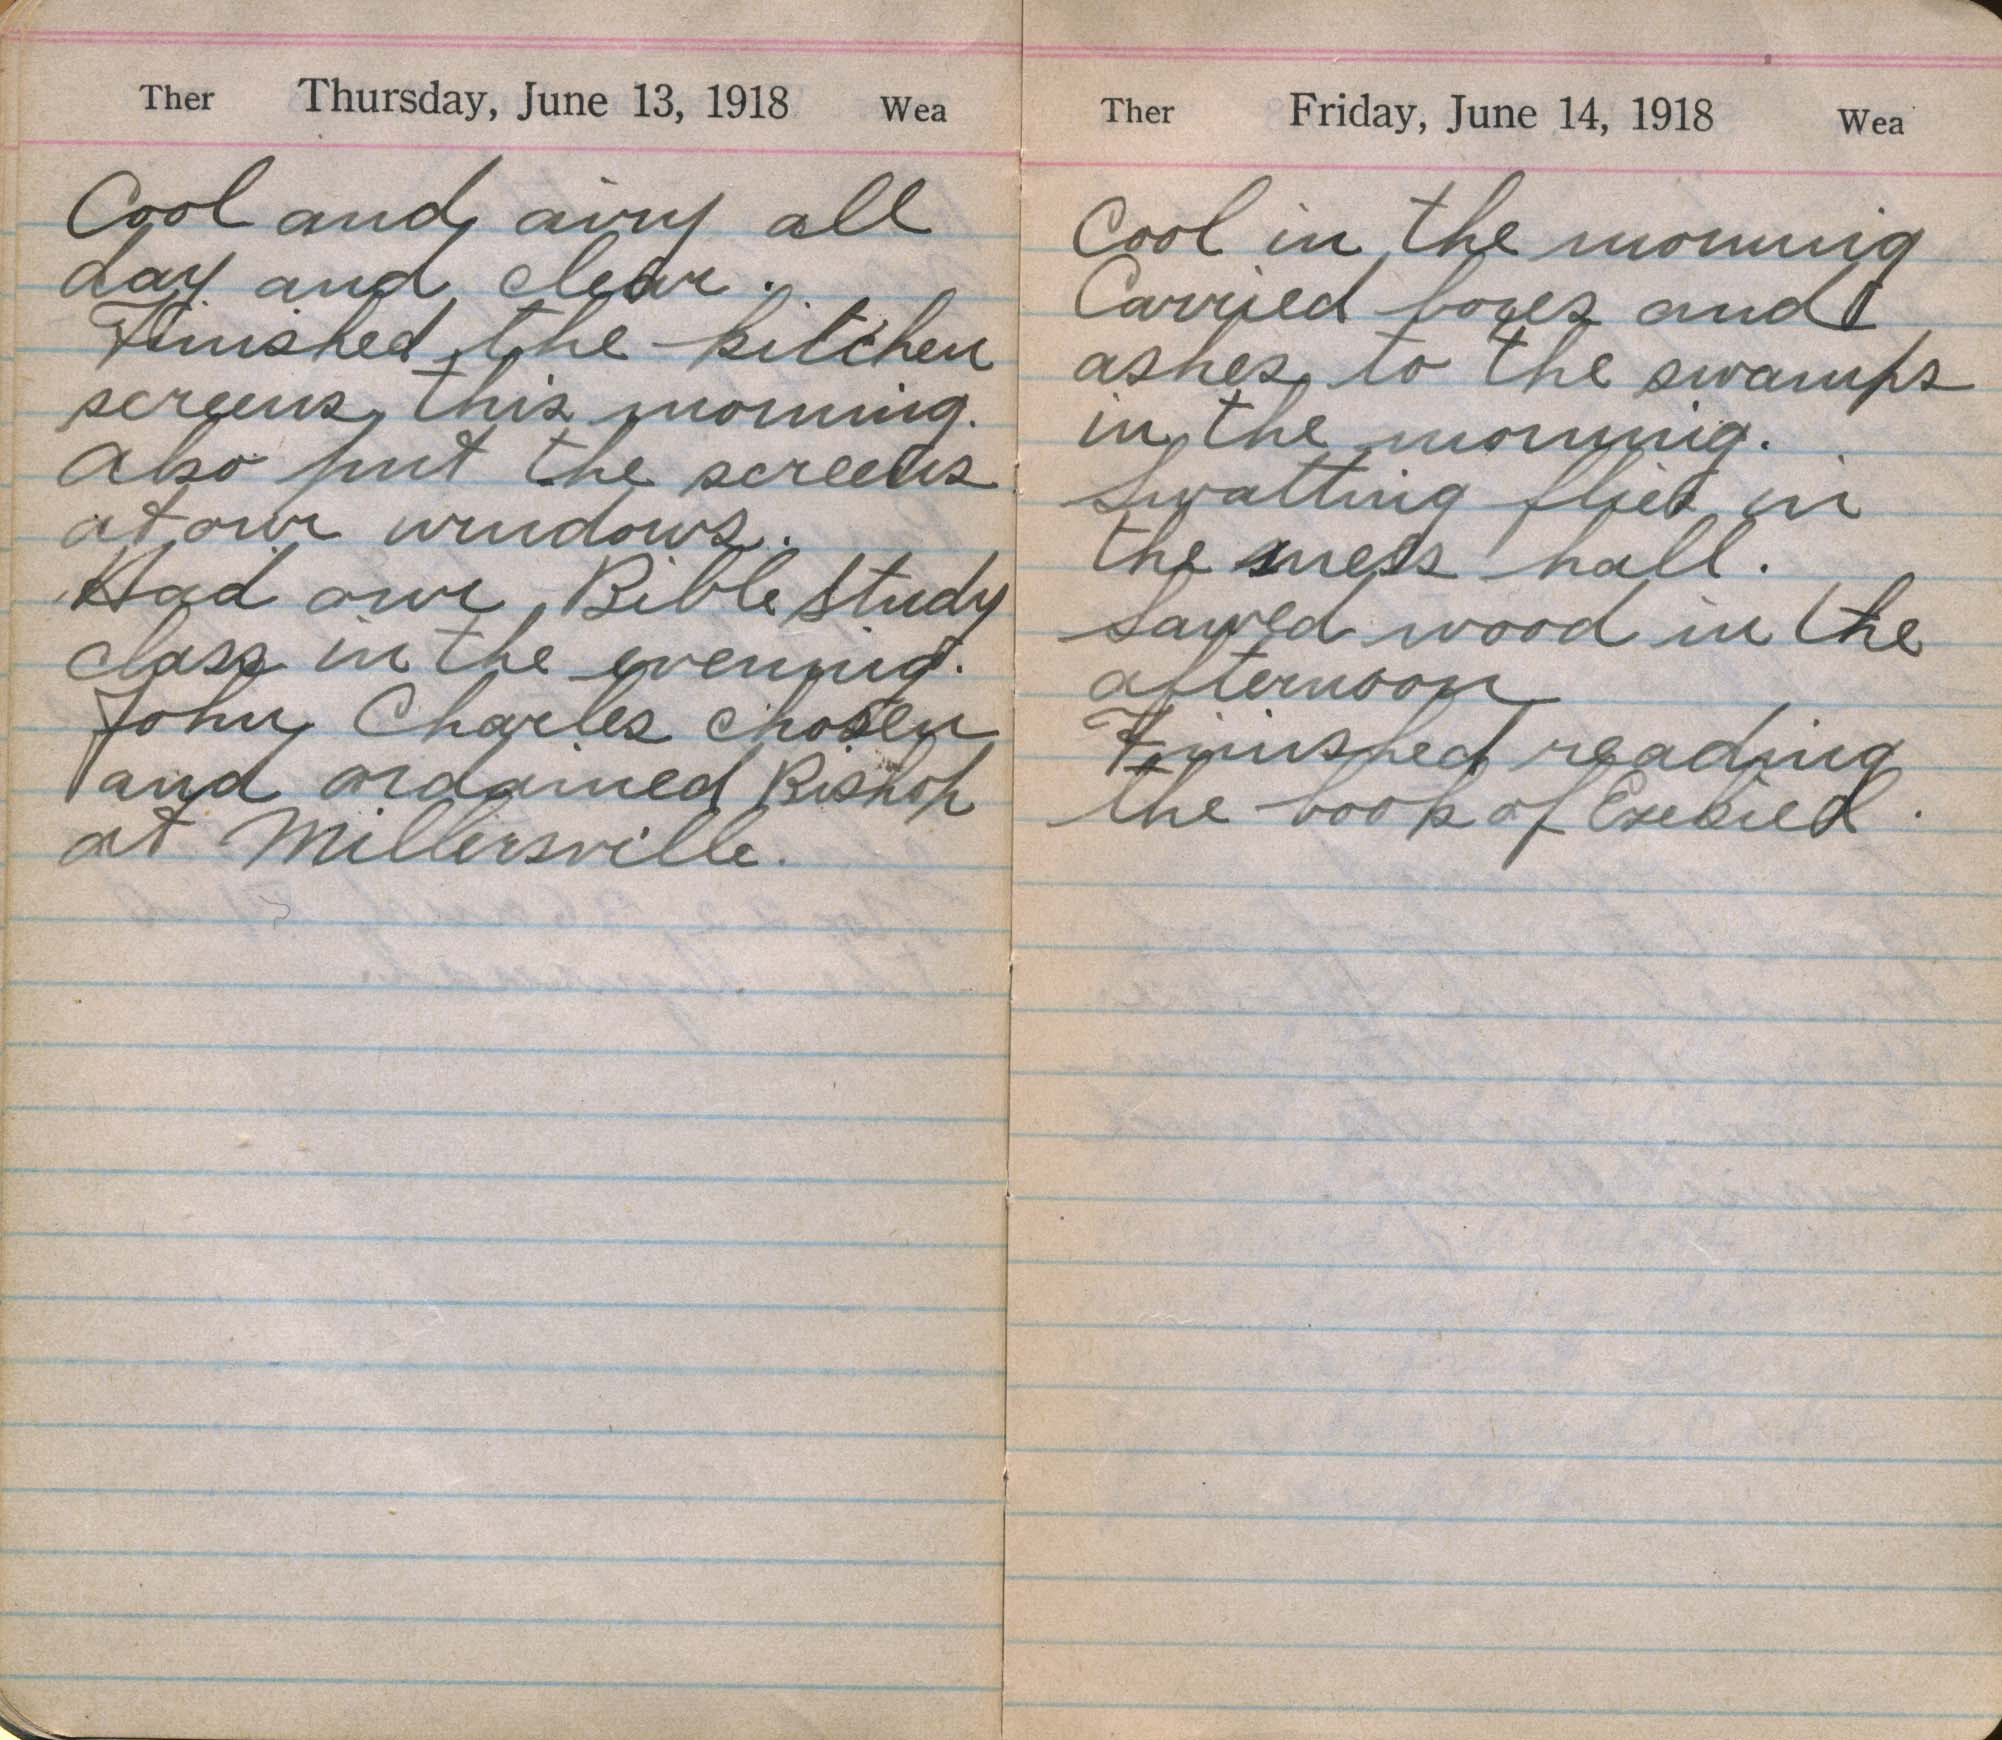 Ther Thursday, June 13, 1918 Wea
Cool and airy all
day and clear.
Finished the kitchen
screens this morning.
Also put the screens
at our windows.
Had our Bible Study
class in the evening.
John Charles chosen
and ordained Bishop
at Millersville.
Ther Friday, June 14, 1918 Wea
Cool in the morning
Carried boxes and
ashes to the swamps
in the morning.
Swatting flies in
the mess hall.
Sawed wood in the
afternoon
Finished reading
the book of Ezekiel.